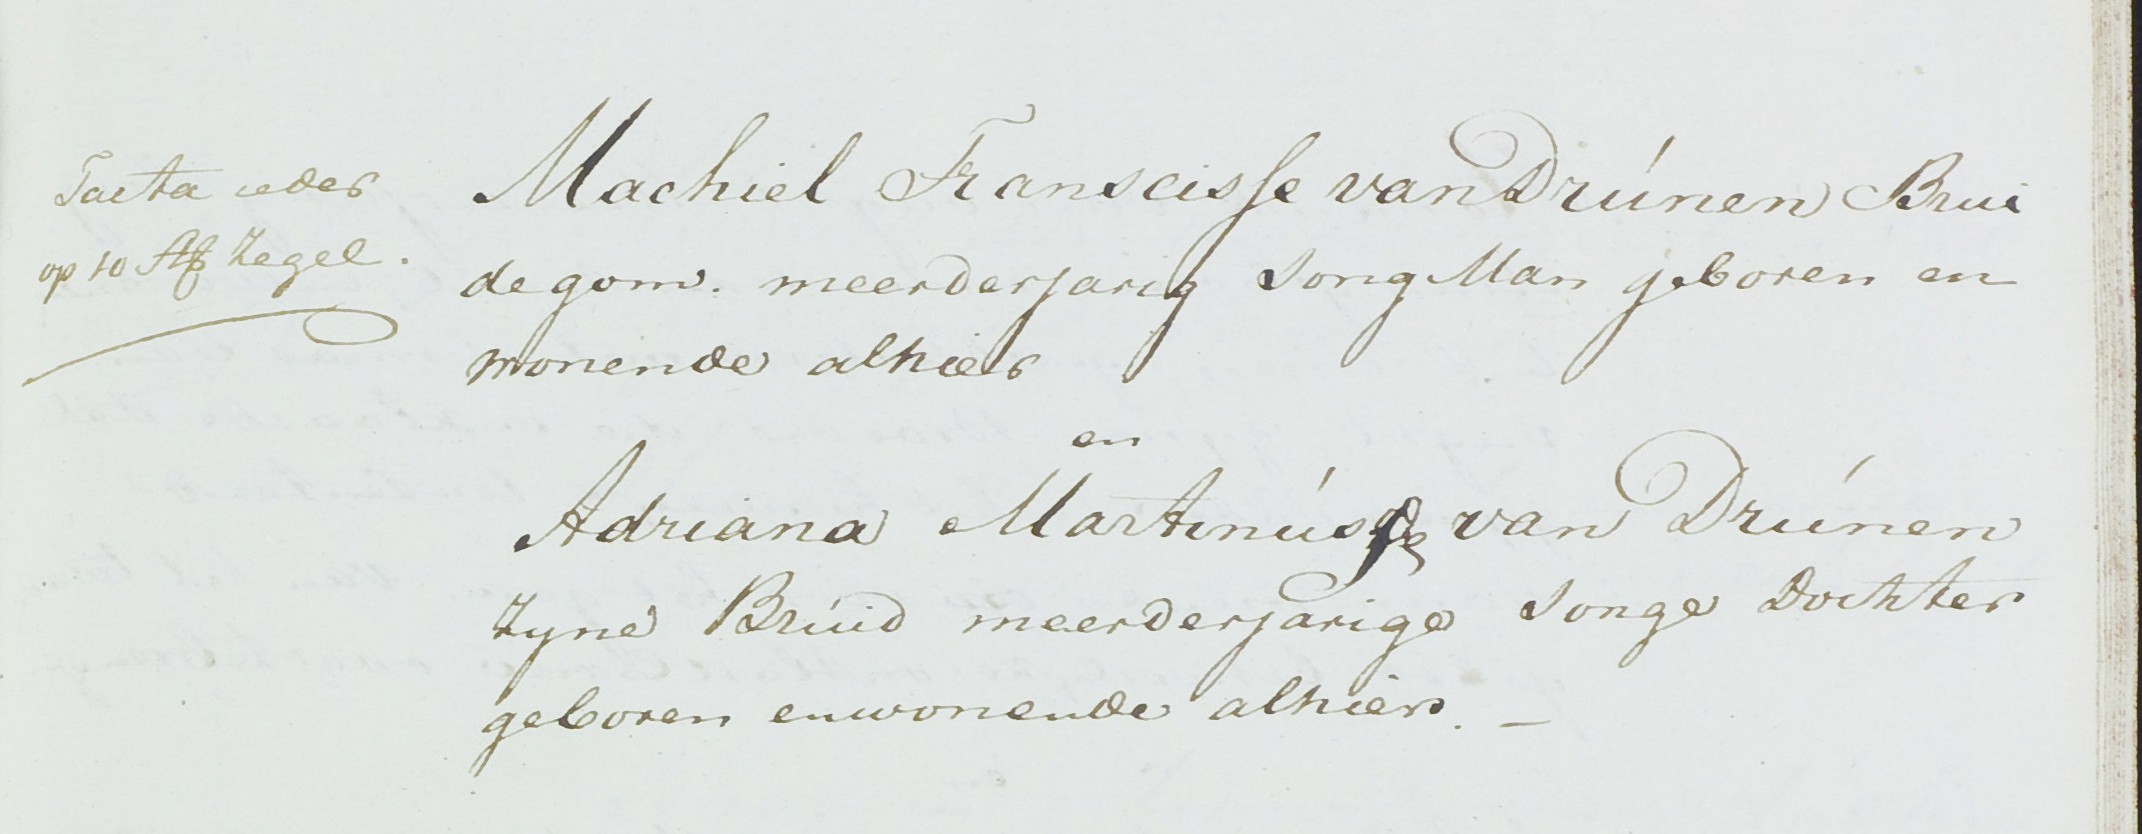 Tacta ieder
op 10 Stß Zegel.
Machiel Franscisse van Drúnen Brui
degom. meerderjarig Jong Man geboren en
wonende alhier
en
Adriana Martinússe van Drúnen
Zyne Brúid meerderjarige Jonge Dochter
geboren en wonende alhier. —